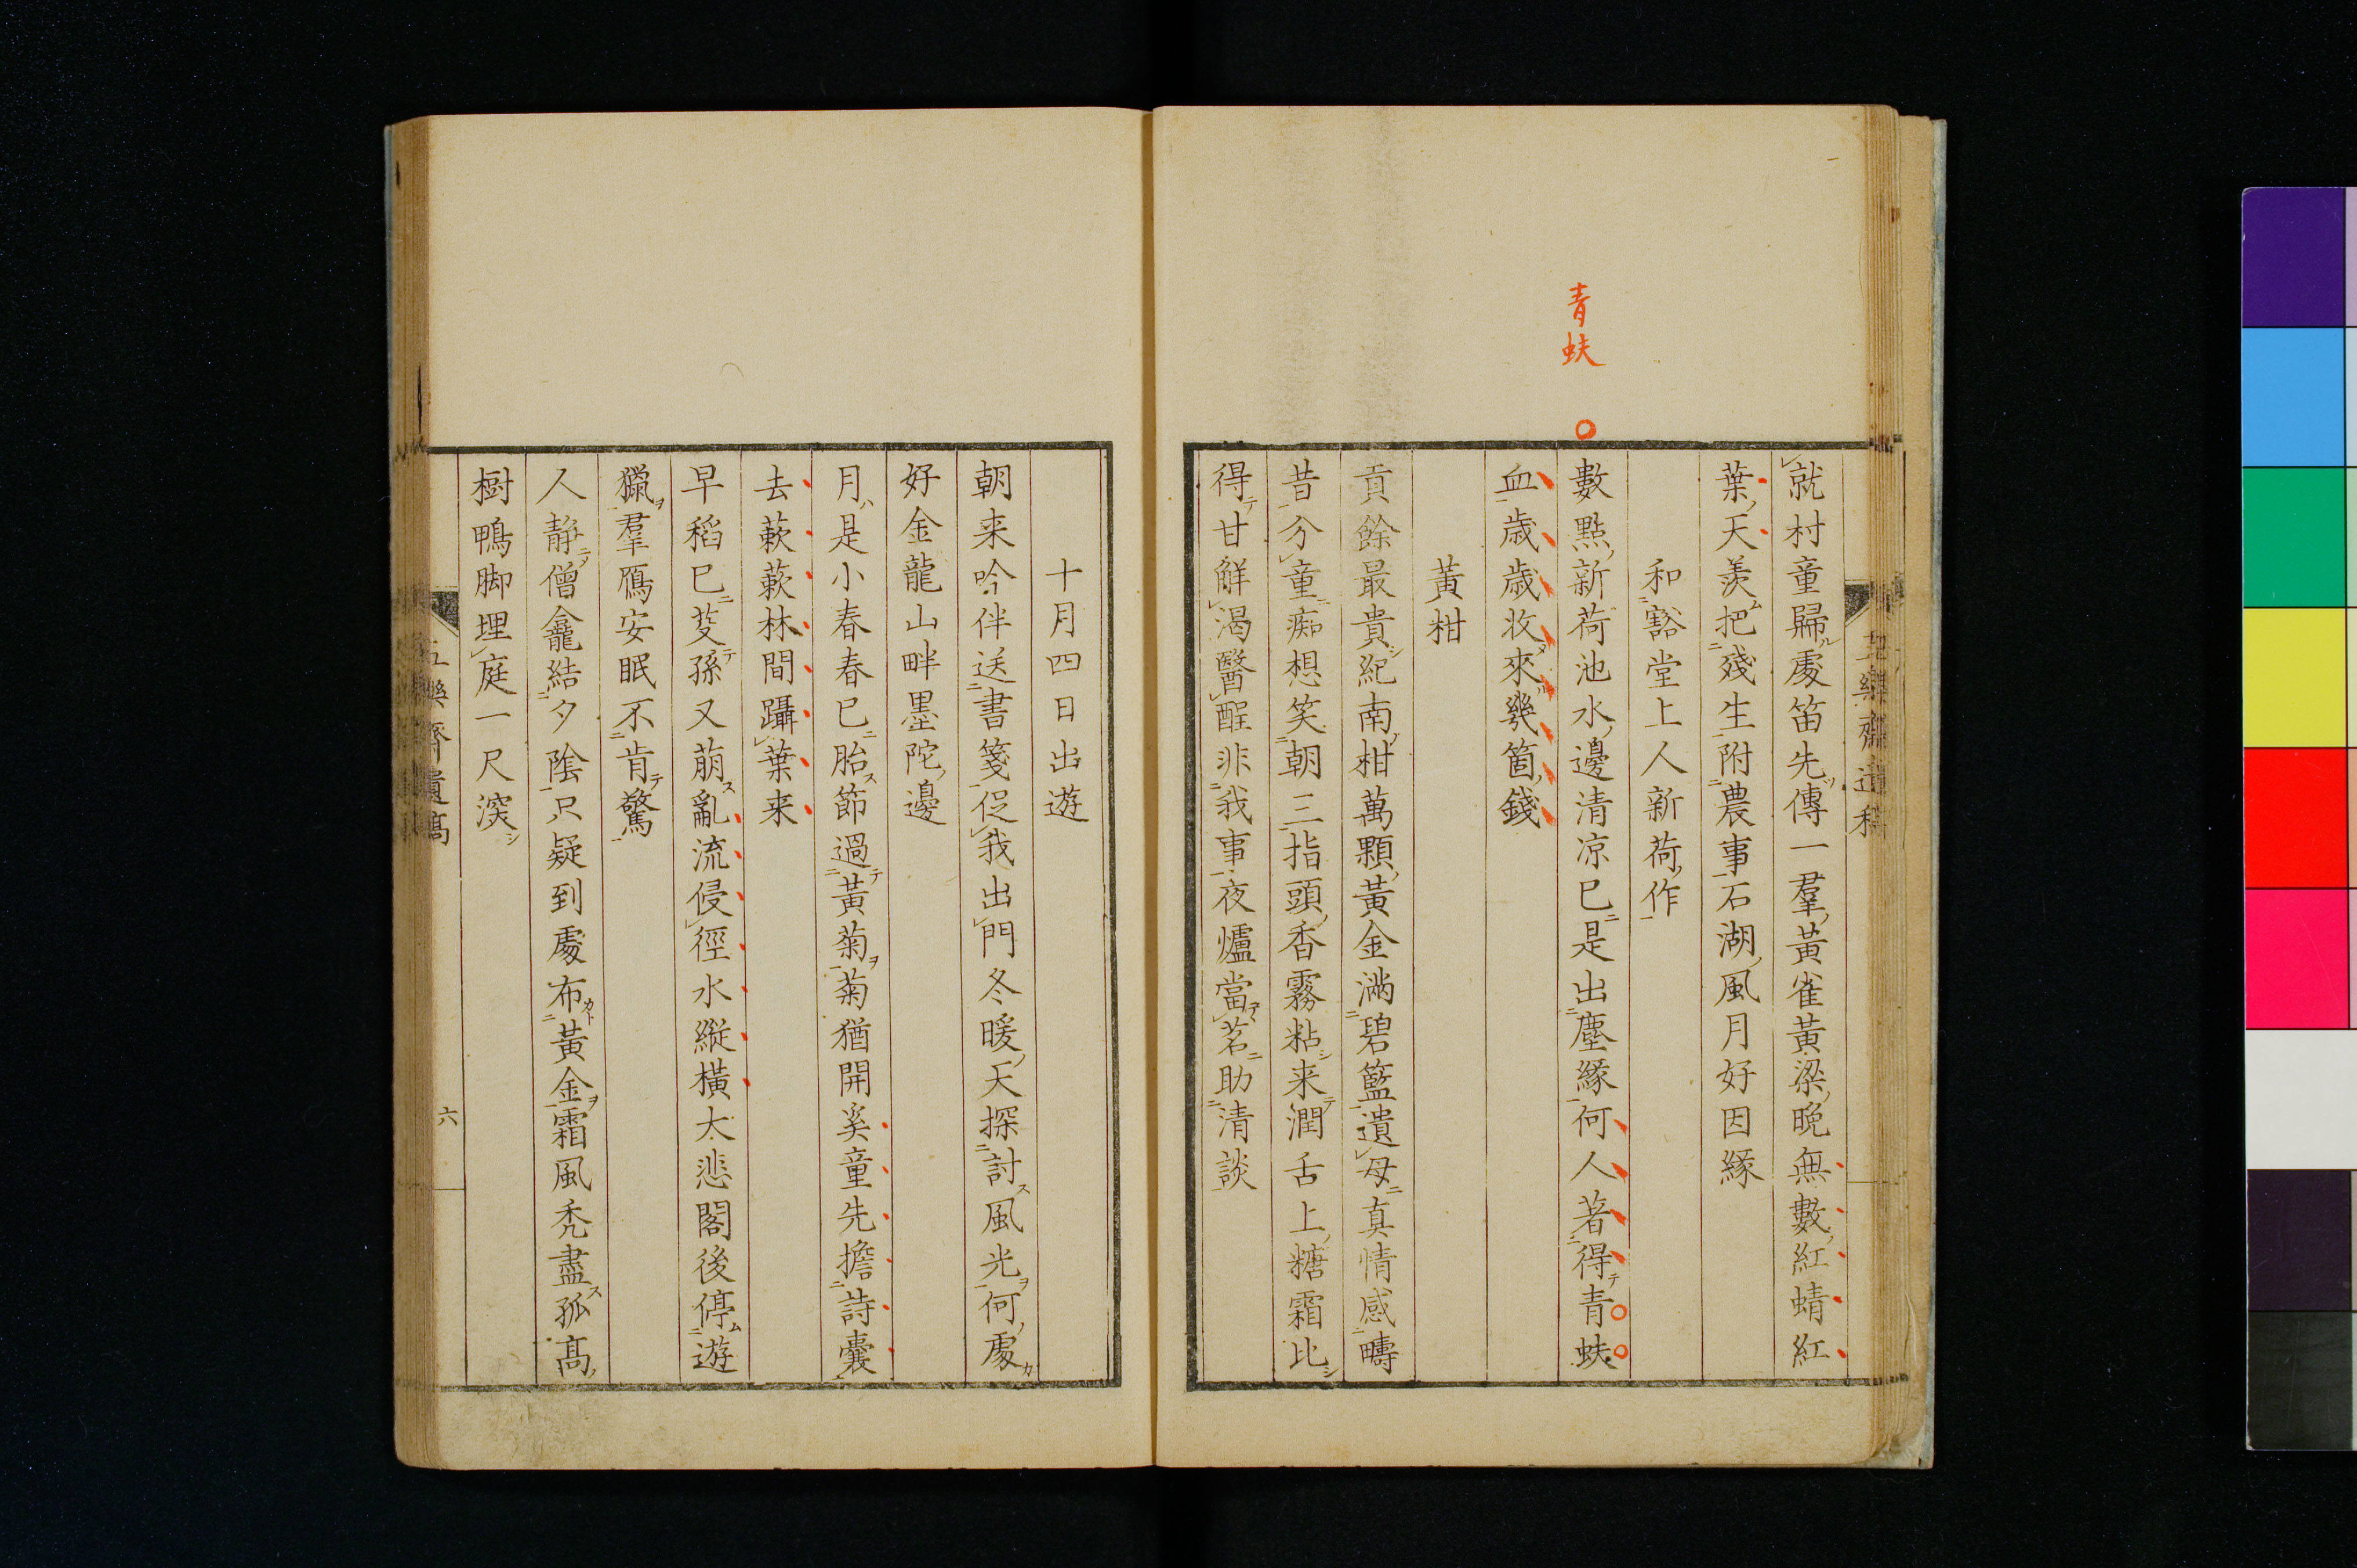 青蚨
就村童歸處笛先傳一羣黃雀黃粱晚無數紅蜻紅
葉天羨把殘生附農事石湖風月好因緣
和豁堂上人新荷作
數點新荷池水邊清凉已是出塵緣何人著得青蚨
血歲歲收來幾箇錢
黃柑
貢餘最貴紀南柑萬顆黃金滿碧籃遺母真情感疇
昔分童痴想笑朝三指頭香霧粘来潤舌上糖霜比
得甘解渴醫酲非我事夜爐當茗助清談
十月四日出遊
朝来吟伴送書箋促我出門冬暖天探討風光何處
好金龍山畔墨陀邊
月是小春春已胎節過黃菊菊猶開奚童先擔詩囊
去蔌蔌林間躡葉来
早稻已芟孫又萠亂流侵徑水縱橫大悲閣後停遊
獵羣鴈安眠不肯驚
人静僧龕結夕陰只疑到處布黃金霜風禿盡孤髙
樹鴨脚埋庭一尺深
齋遺稿
六